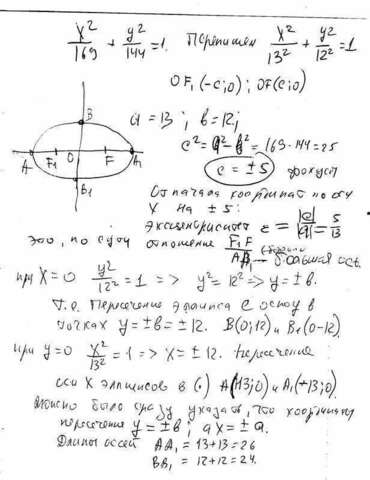 x²/169 + y²/144 = 1. Перепишем x²/13² + y²/12² = 1
OF₁(-c;0); OF(c;0)
a = 13; b = 12;
c² = a² - b² = 169 - 144 = 25
c = ± 5 фокус
От начала координат по оси
X на ± 5.
эксцентриситет ε = |c|/|a| = 5/13
это, по сути отношение F₁F / AA₁ - большая ось.
при X = 0 y²/12² = 1 => y² = 12² => y = ± b.
Т.е. Пересечение эллипса с осью в
точках y = ± b = ± 12. B(0;12) и B₁(0-12)
при y = 0 x²/13² = 1 => x = ± 12. Пересечение
оси X эллипсов в (·) A(13;0) и A₁(+13;0)
Можно было сразу указать, что координаты
пересечения y = ± b; a x = ± a.
Длины осей AA₁ = 13+13 = 26
BB₁ = 12+12 = 24.
B
A F₁ O F A₁
B₁